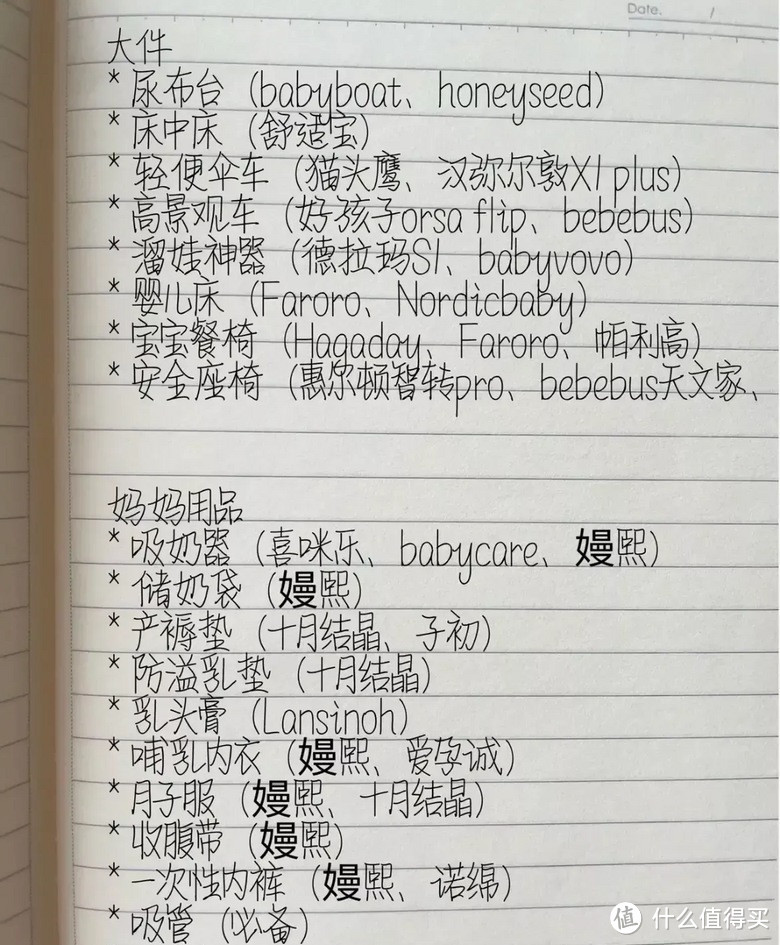 Date. /
大件
* 尿布台（babyboat、honeyseed）
* 床中床（舒适宝）
* 轻便伞车（猫头鹰、汉弥尔敦X1 plus）
* 高景观车（好孩子orsa flip、bebebus）
* 溜娃神器（德拉玛S1、babyvovo）
* 婴儿床（Faroro、Nordicbaby）
* 宝宝餐椅（Hagaday、Faroro、帕利高）
* 安全座椅（惠尔顿智转pro、bebebus天文家、
妈妈用品
* 吸奶器（喜咪乐、babycare、嫚熙）
* 储奶袋（嫚熙）
* 产褥垫（十月结晶、子初）
* 防溢乳垫（十月结晶）
* 乳头膏（Lansinoh）
* 哺乳内衣（嫚熙、爱孕诚）
* 月子服（嫚熙、十月结晶）
* 收腹带（嫚熙）
* 一次性内裤（嫚熙、诺绵）
* 吸管（必备）
值 什么值得买